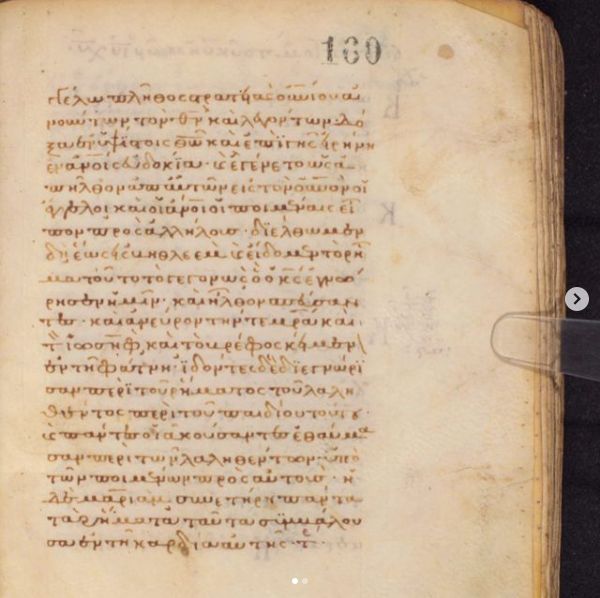 160
γέλω πλῆθος στρατιᾶς οὐνίου αἰ
νούντων τὸν θν καὶ λεγόντων· δό
ξα ἐν ὑψίστοις θω καὶ ἐπὶ γῆς εἰρήνη
ἐν ανοις εὐδοκία· καὶ ἐγένετο ὡς ἀ
πῆλθον ἀπ αὐτῶν εἰς τὸν οὐνον οἱ
ἄγγελοι καὶ οἱ ανοι οἱ ποιμένες εἶ
πον πρὸς ἀλλήλους· διέλθωμεν
δὴ ἕως βηθλεὲμ καὶ εἴδομεν τὸ ρῆ
μα τοῦτο τὸ γεγονὼς ὃ ὁ κς ἐγνώ
ρησεν ἡμῖν· καὶ ἦλθον σπεύσαν
τες· καὶ ἀνεῦρον τήν τε μαριὰμ καὶ
τὸν ἰωσὴφ, καὶ τὸ βρέφος κείμενον
ἐν τῇ φάτνη· ἰδόντες δὲ διεγνώρι
σαν περὶ τοῦ ρήματος τοῦ λαλη
θέντος περὶ τοῦ παιδίου τούτου·
καὶ πάντες οἱ ἀκούσαντες ἐθαύμα
σαν περὶ τῶν λαληθέντων ὑπὸ
τῶν ποιμένων πρὸς αὐτούς· ἡ
δὲ μαριὰμ συνετήρη πάντα
τὰ ρήματα ταῦτα συμβάλου
σα ἐν τῆ καρδία αὐτῆς·